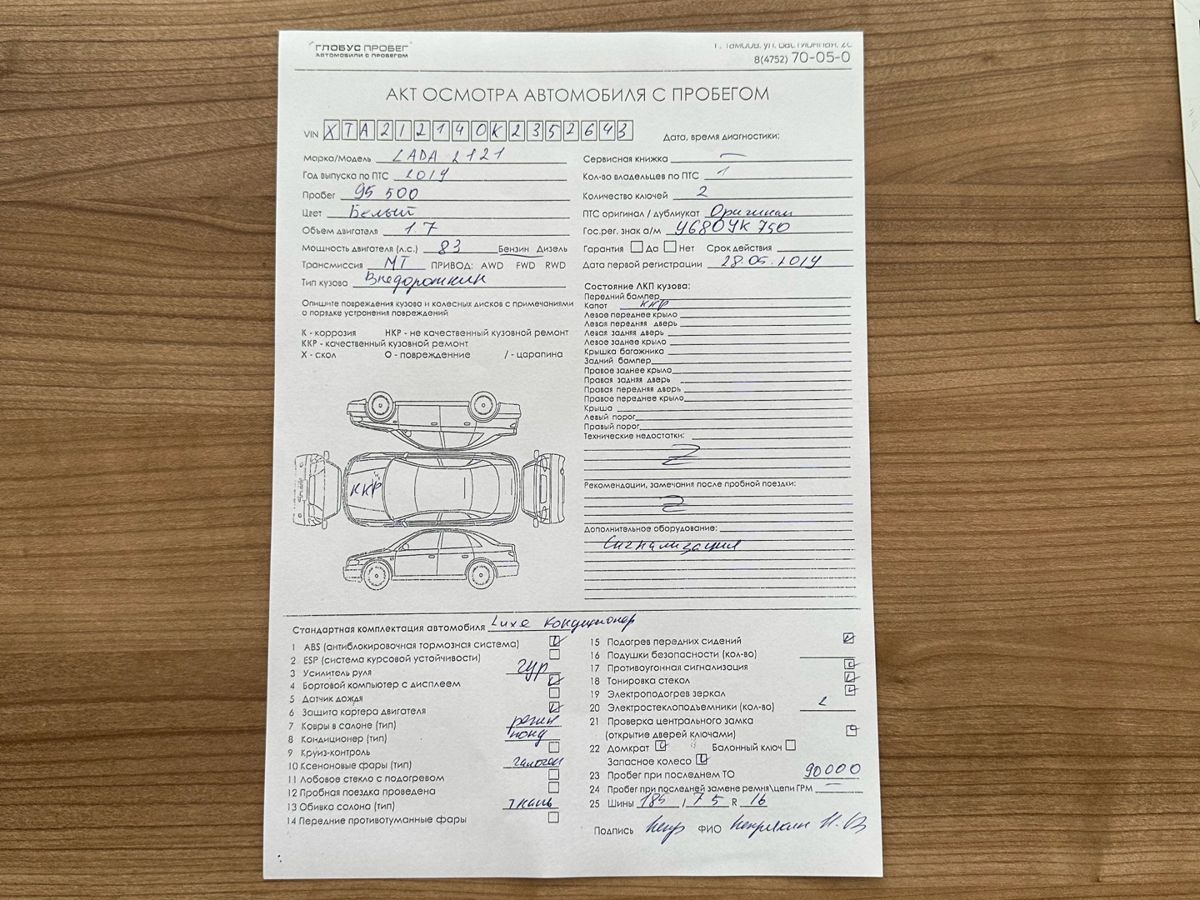 ГЛОБУС ПРОБЕГ
АВТОМОБИЛИ С ПРОБЕГОМ
8(4752) 70-05-0
АКТ ОСМОТРА АВТОМОБИЛЯ С ПРОБЕГОМ
VIN XTA212140K2352643
Дата, время диагностики:
Марка/Модель LADA 2121
Год выпуска по ПТС 2019
Пробег 95 500
Цвет Белый
Объем двигателя 1.7
Мощность двигателя (л.с.) 83 Бензин Дизель
Трансмиссия МТ ПРИВОД: AWD FWD RWD
Тип кузова Внедорожник
Опишите повреждения кузова и колесных дисков с примечаниями
о порядке устранения повреждений
К - коррозия НКР - не качественный кузовной ремонт
ККР - качественный кузовной ремонт
Х - скол О - поврежденние / - царапина
ККР
Сервисная книжка —
Кол-во владельцев по ПТС 1
Количество ключей 2
ПТС оригинал / дубликат Оригинал
Гос.рег. знак а/м У680УК 750
Гарантия Да Нет Срок действия
Дата первой регистрации 28.05.2019
Состояние ЛКП кузова:
Передний бампер
Капот ККР
Левое переднее крыло
Левая передняя дверь
Левая задняя дверь
Левое заднее крыло
Крышка багажника
Задний бампер
Правое заднее крыло
Правая задняя дверь
Правая передняя дверь
Правое переднее крыло
Крыша
Левый порог
Правый порог
Технические недостатки:
Рекомендации, замечания после пробной поездки:
Дополнительное оборудование:
Сигнализация
Стандартная комплектация автомобиля Luxe Кондиционер
1 ABS (антиблокировочная тормозная система)
2 ESP (система курсовой устойчивости)
3 Усилитель руля ГУР
4 Бортовой компьютер с дисплеем
5 Датчик дождя
6 Защита картера двигателя
7 Ковры в салоне (тип) резин
8 Кондиционер (тип) конд
9 Круиз-контроль
10 Ксеноновые фары (тип) галоген
11 Лобовое стекло с подогревом
12 Пробная поездка проведена
13 Обивка салона (тип) ткань
14 Передние противотуманные фары
15 Подогрев передних сидений
16 Подушки безопасности (кол-во)
17 Противоугонная сигнализация
18 Тонировка стекол
19 Электроподогрев зеркал
20 Электростеклоподъемники (кол-во) 2
21 Проверка центрального замка
(открытие дверей ключами)
22 Домкрат Балонный ключ
Запасное колесо
23 Пробег при последнем ТО 90000
24 Пробег при последней замене ремня\цепи ГРМ
25 Шины 185 / 75 R 16
Подпись ФИО